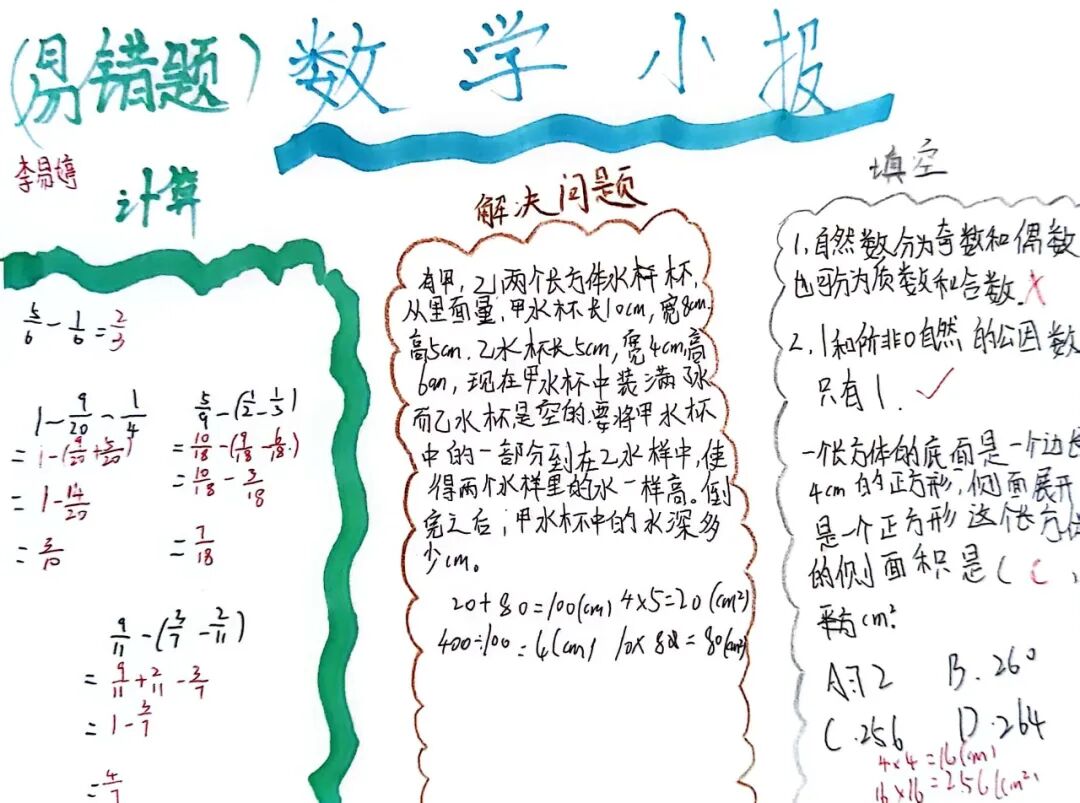 (易错题) 数学小报
李易婷
计算
5/6 - 1/6 = 2/3
1 - 9/20 - 1/4
= 1 - (9/20 + 5/20)
= 1 - 14/20
= 3/10
5/9 - (1/2 - 1/3)
= 10/18 - (9/18 - 6/18)
= 10/18 - 3/18
= 7/18
9/11 - (3/7 - 2/11)
= 9/11 + 2/11 - 3/7
= 1 - 3/7
= 4/7
解决问题
有甲,乙两个长方体水样杯,
从里面量,甲水杯长10cm,宽8cm,
高5cm.乙水杯长5cm,宽4cm,高
6cm,现在甲水杯中装满
而乙水杯是空的.要将甲水杯
中的一部分到在乙水样中,使
得两个水样里的水一样高。倒
完之后,甲水杯中的水深多
少cm。
20+80=100(cm) 4×5=20(cm²)
400÷100=4(cm) 10×8=80(cm²)
填空
1.自然数分为奇数和偶数
也可分为质数和合数.×
2.1和所非0自然的公因数
只有1.✓
一个长方体的底面是一个边长
4cm的正方形,侧面展开
是一个正方形这个长方体
的侧面积是(C
cm².
A.72 B.260
C.256 D.264
4×4=16(cm)
16×16=256(cm²)